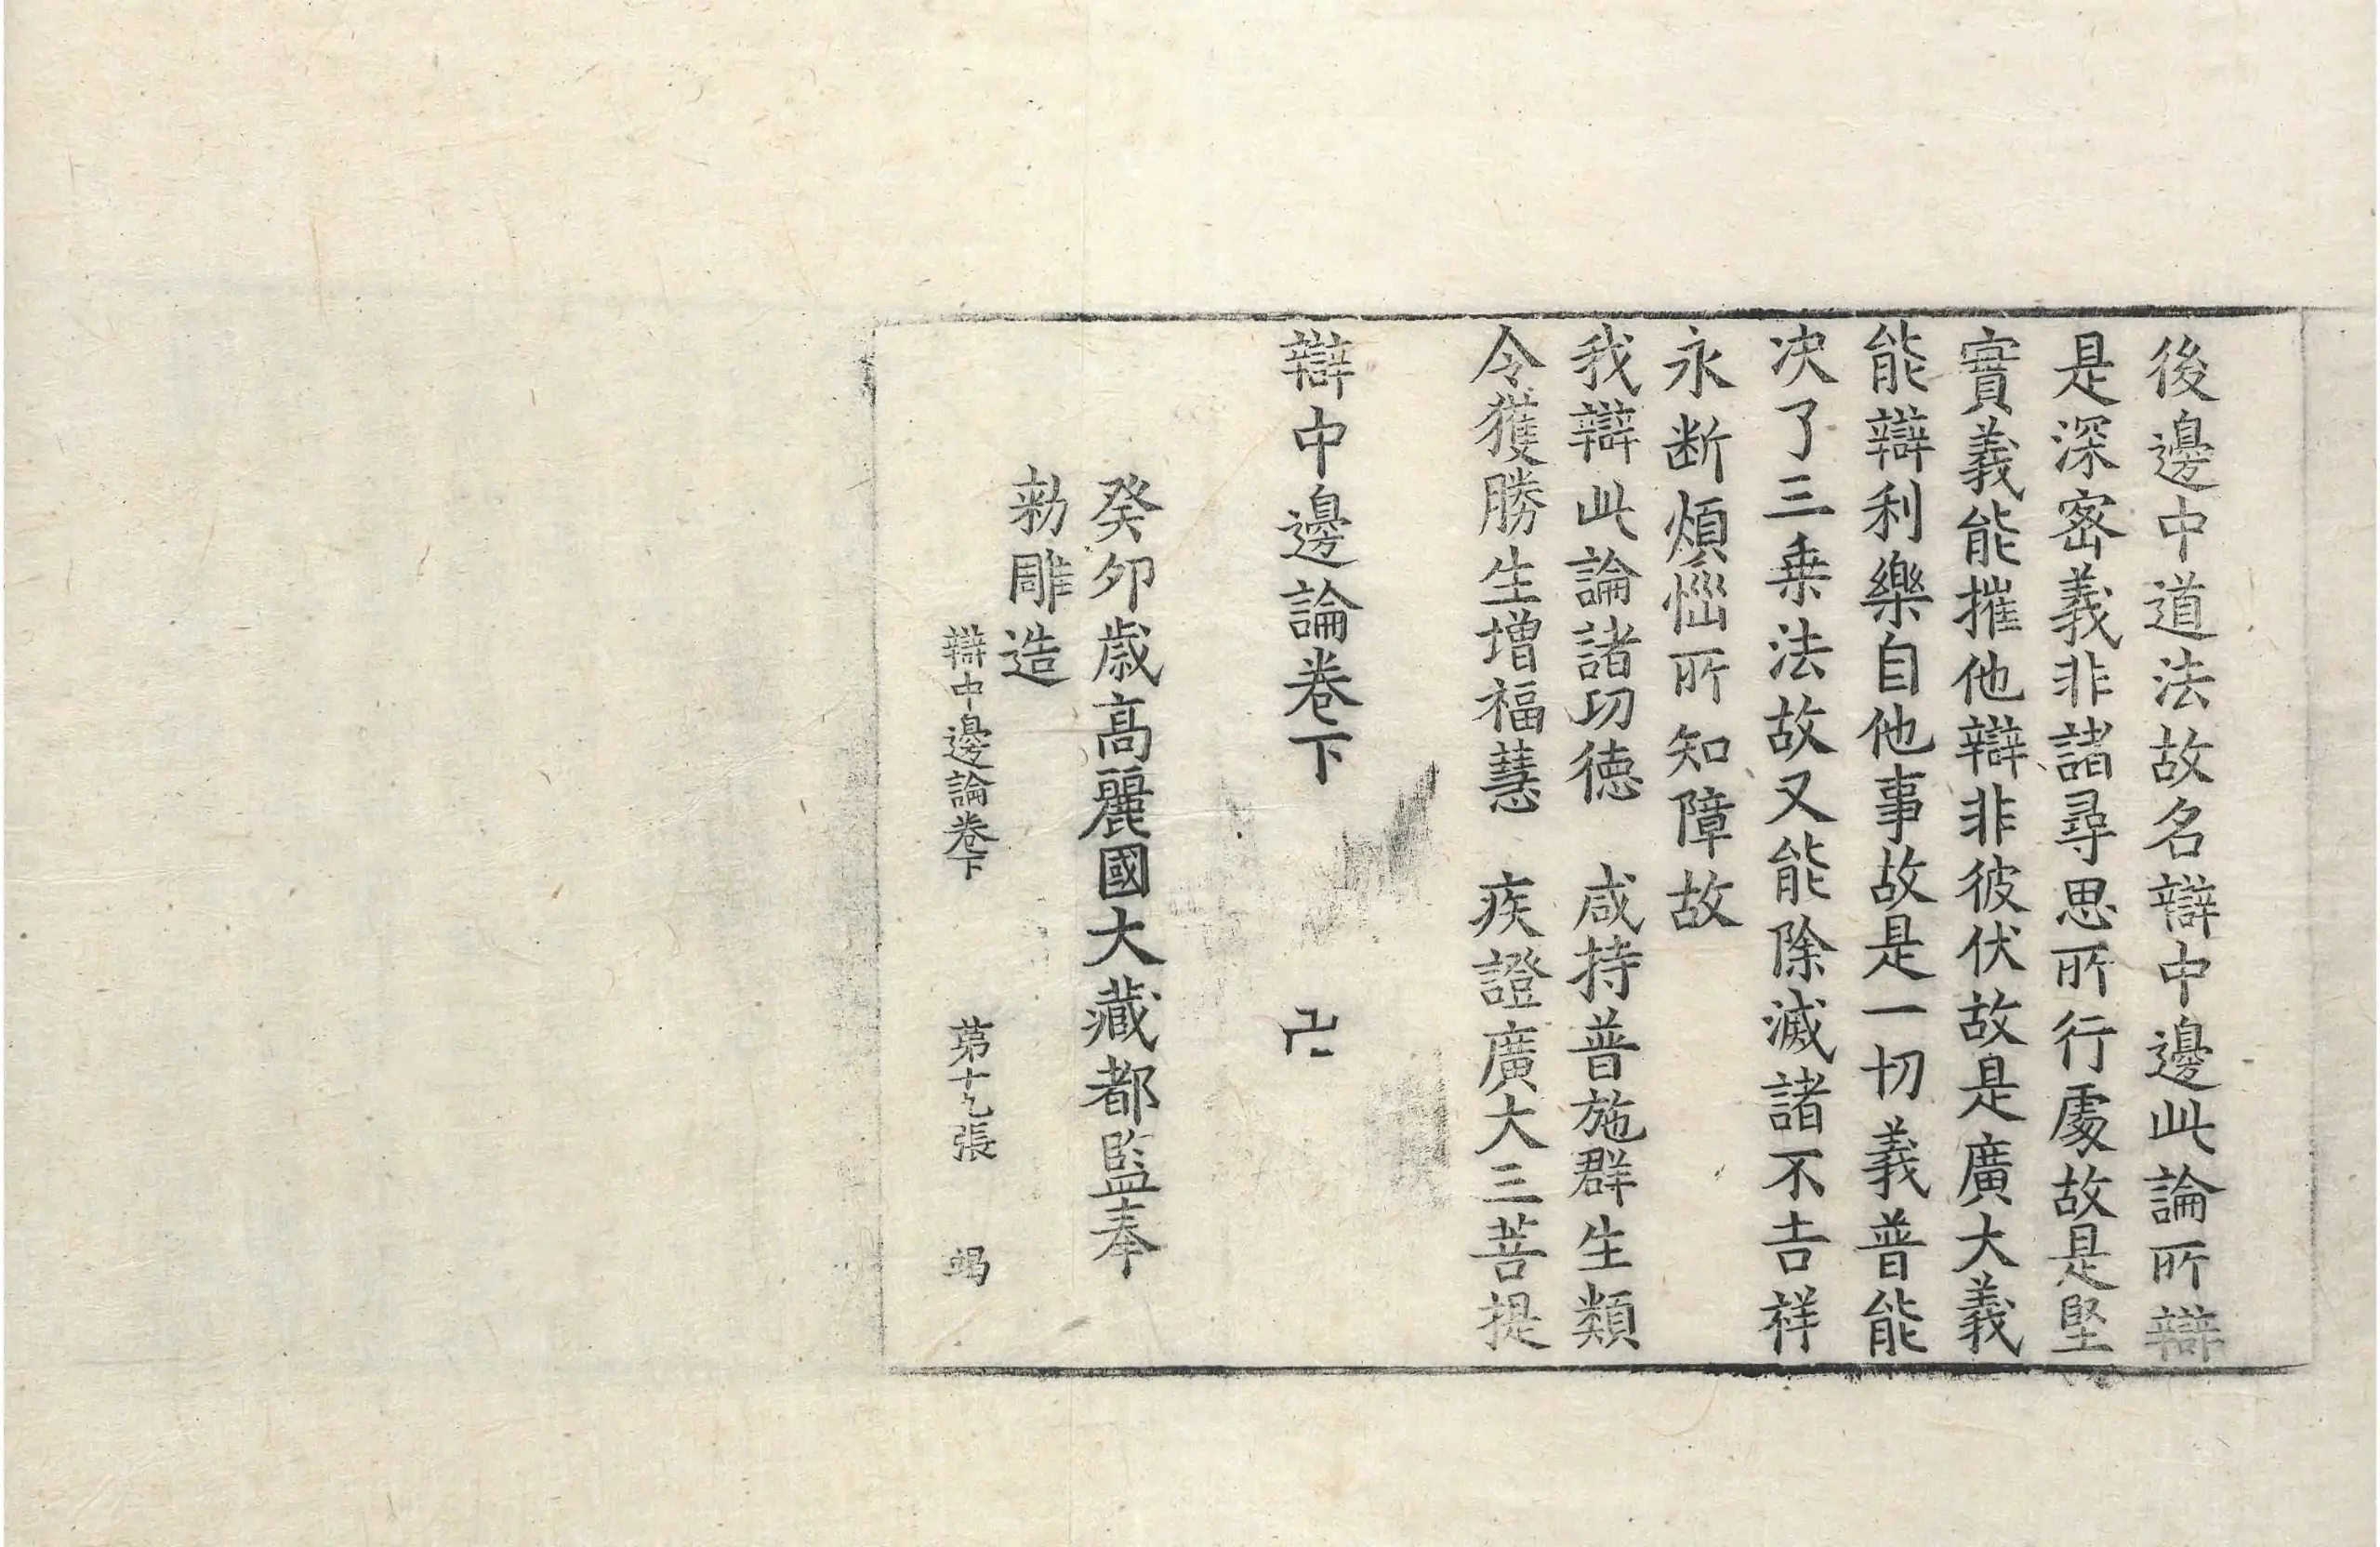 後邊中道法故名辯中邊此論所辯
是深密義非諸尋思所行處故是堅
實義能摧他辯非彼伏故是廣大義
能辯利樂自他事故是一切義普能
决了三乗法故又能除滅諸不吉祥
永断煩惱所知障故
我辯此論諸功德　咸持普施群生類
令獲勝生增福慧　疾證廣大三菩提
辯中邊論卷下　卍
癸卯歲高麗國大藏都監奉
勑雕造
辯中邊論卷下　第十九張　竭